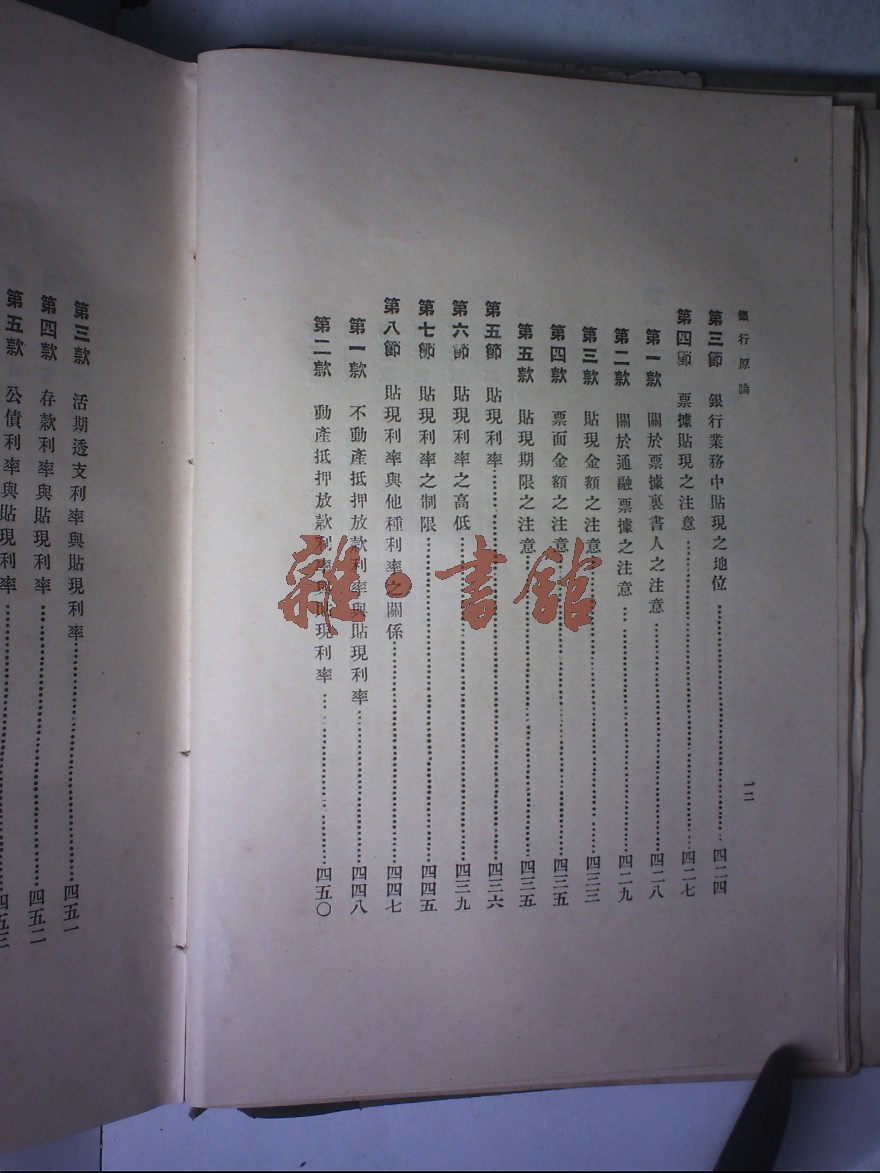 銀行原論
一二
第三節 銀行業務中貼現之地位……四二四
第四節 票據貼現之注意……四二七
第一款 關於票據裏書人之注意……四二八
第二款 關於通融票據之注意……四二九
第三款 貼現金額之注意……四三三
第四款 票面金額之注意……四三五
第五款 貼現期限之注意……四三五
第五節 貼現利率……四三六
第六節 貼現利率之高低……四三九
第七節 貼現利率之制限……四四五
第八節 貼現利率與他種利率之關係……四四七
第一款 不動產抵押放款利率與貼現利率……四四八
第二款 動產抵押放款利率與貼現利率……四五〇
第三款 活期透支利率與貼現利率……四五一
第四款 存款利率與貼現利率……四五二
第五款 公債利率與貼現利率……四五三
雜·書館